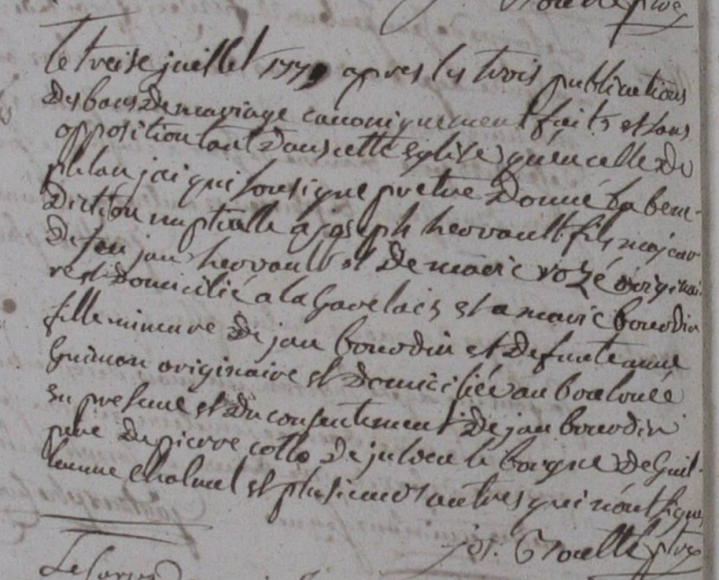 le treise juillet 1779 apres les trois publications
des bans de mariage canoniquement faits et sans
opposition tant dans cette eglise qu'en celle de
phelan jai qui sousigne pretre donné la bene-
diction nuptialle a joseph heovault fils majeur
de feu jan heovault et de marie rozé originai-
re et domicilié a la gavelais et a marie bourdin
fille mineure de jan bourdin et defunte anne
guimon originaire et domiciliée au boulouée
en presence et du consentement de jan bourdin
pere de pierre collo de julien le borgne de guil-
laume chalmel et plusieurs autres qui n'ont signé
jos.